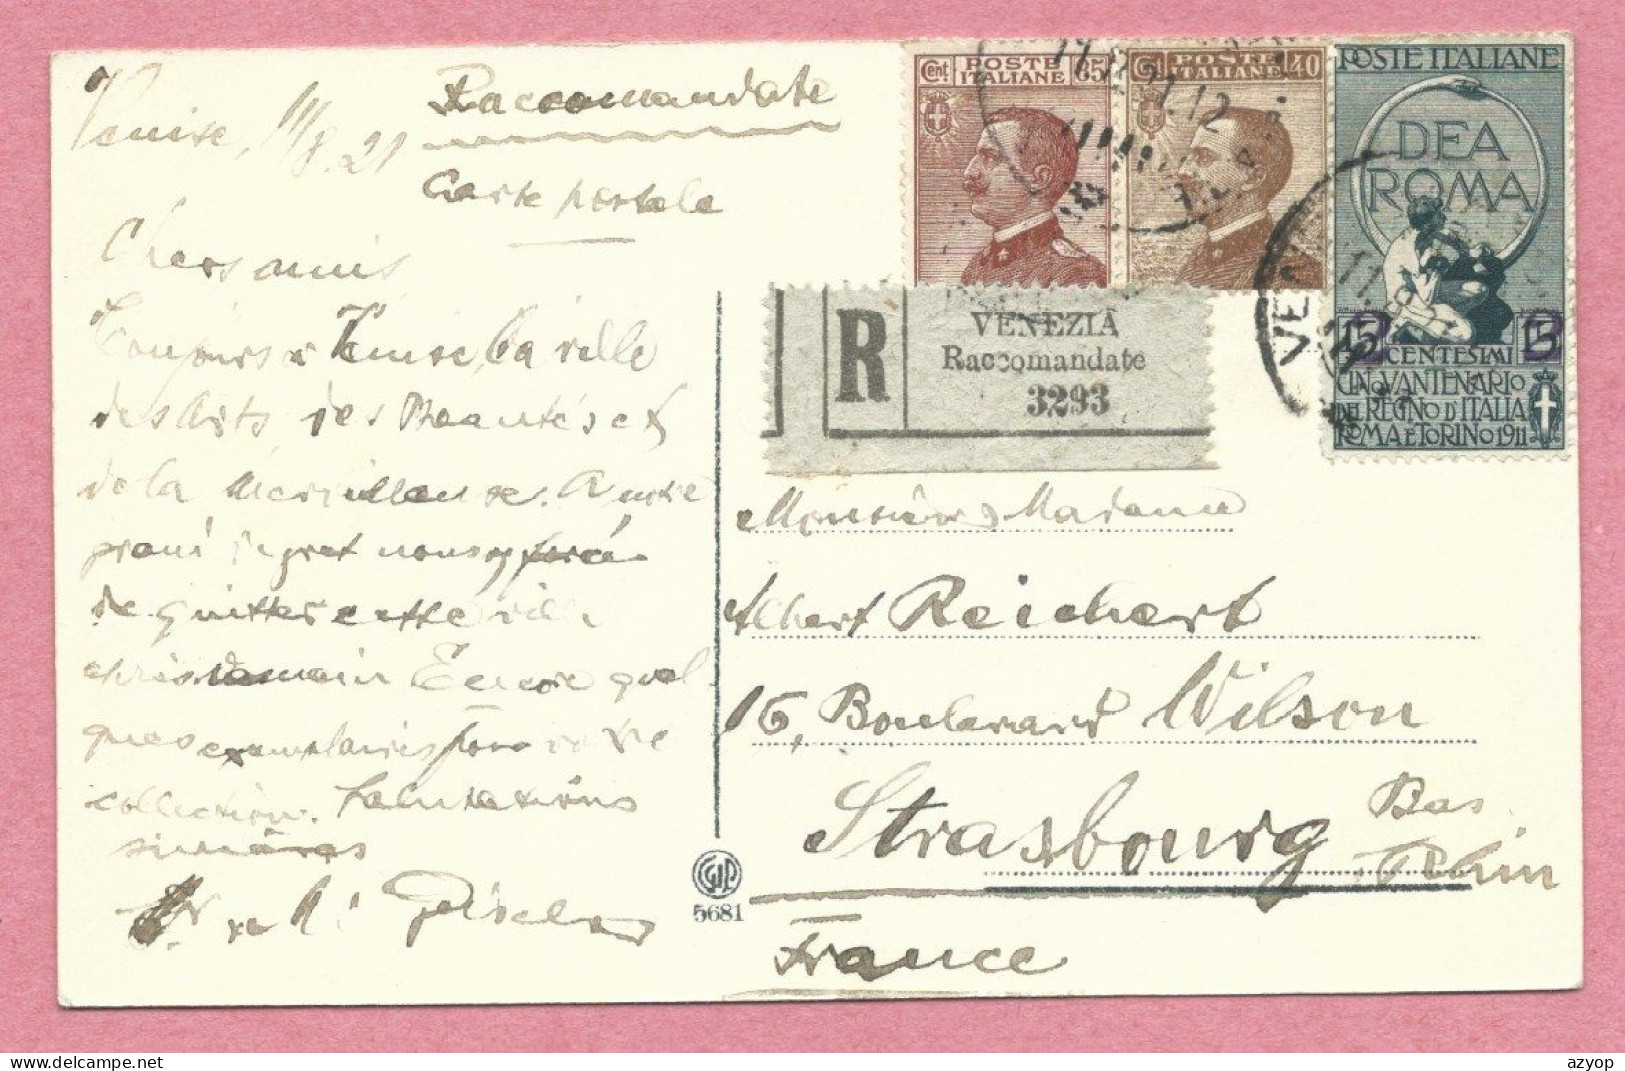 Venise, 11/8.21
Raccomandate
Carte postale
Chers amis
Toujours à Venise, la ville
des Arts, des Beautés et
de la Merveilleuse. A notre
grand regret nous
de quitter cette ville
après demain Encore quel
ques exemplaires pour votre
collection. Salutations
sincères
Cent POSTE ITALIANE 85
POSTE ITALIANE 40
POSTE ITALIANE
DEA
ROMA
15 15
CENTESIMI
CINQVANTENARIO
DEL REGNO D'ITALIA
ROMA E TORINO 1911
R
VENEZIA
Raccomandate
3293
Monsieur Madame
Albert Reichert
16, Boulevard Wilson
Strasbourg Bas
Rhin
France
5681
azyop